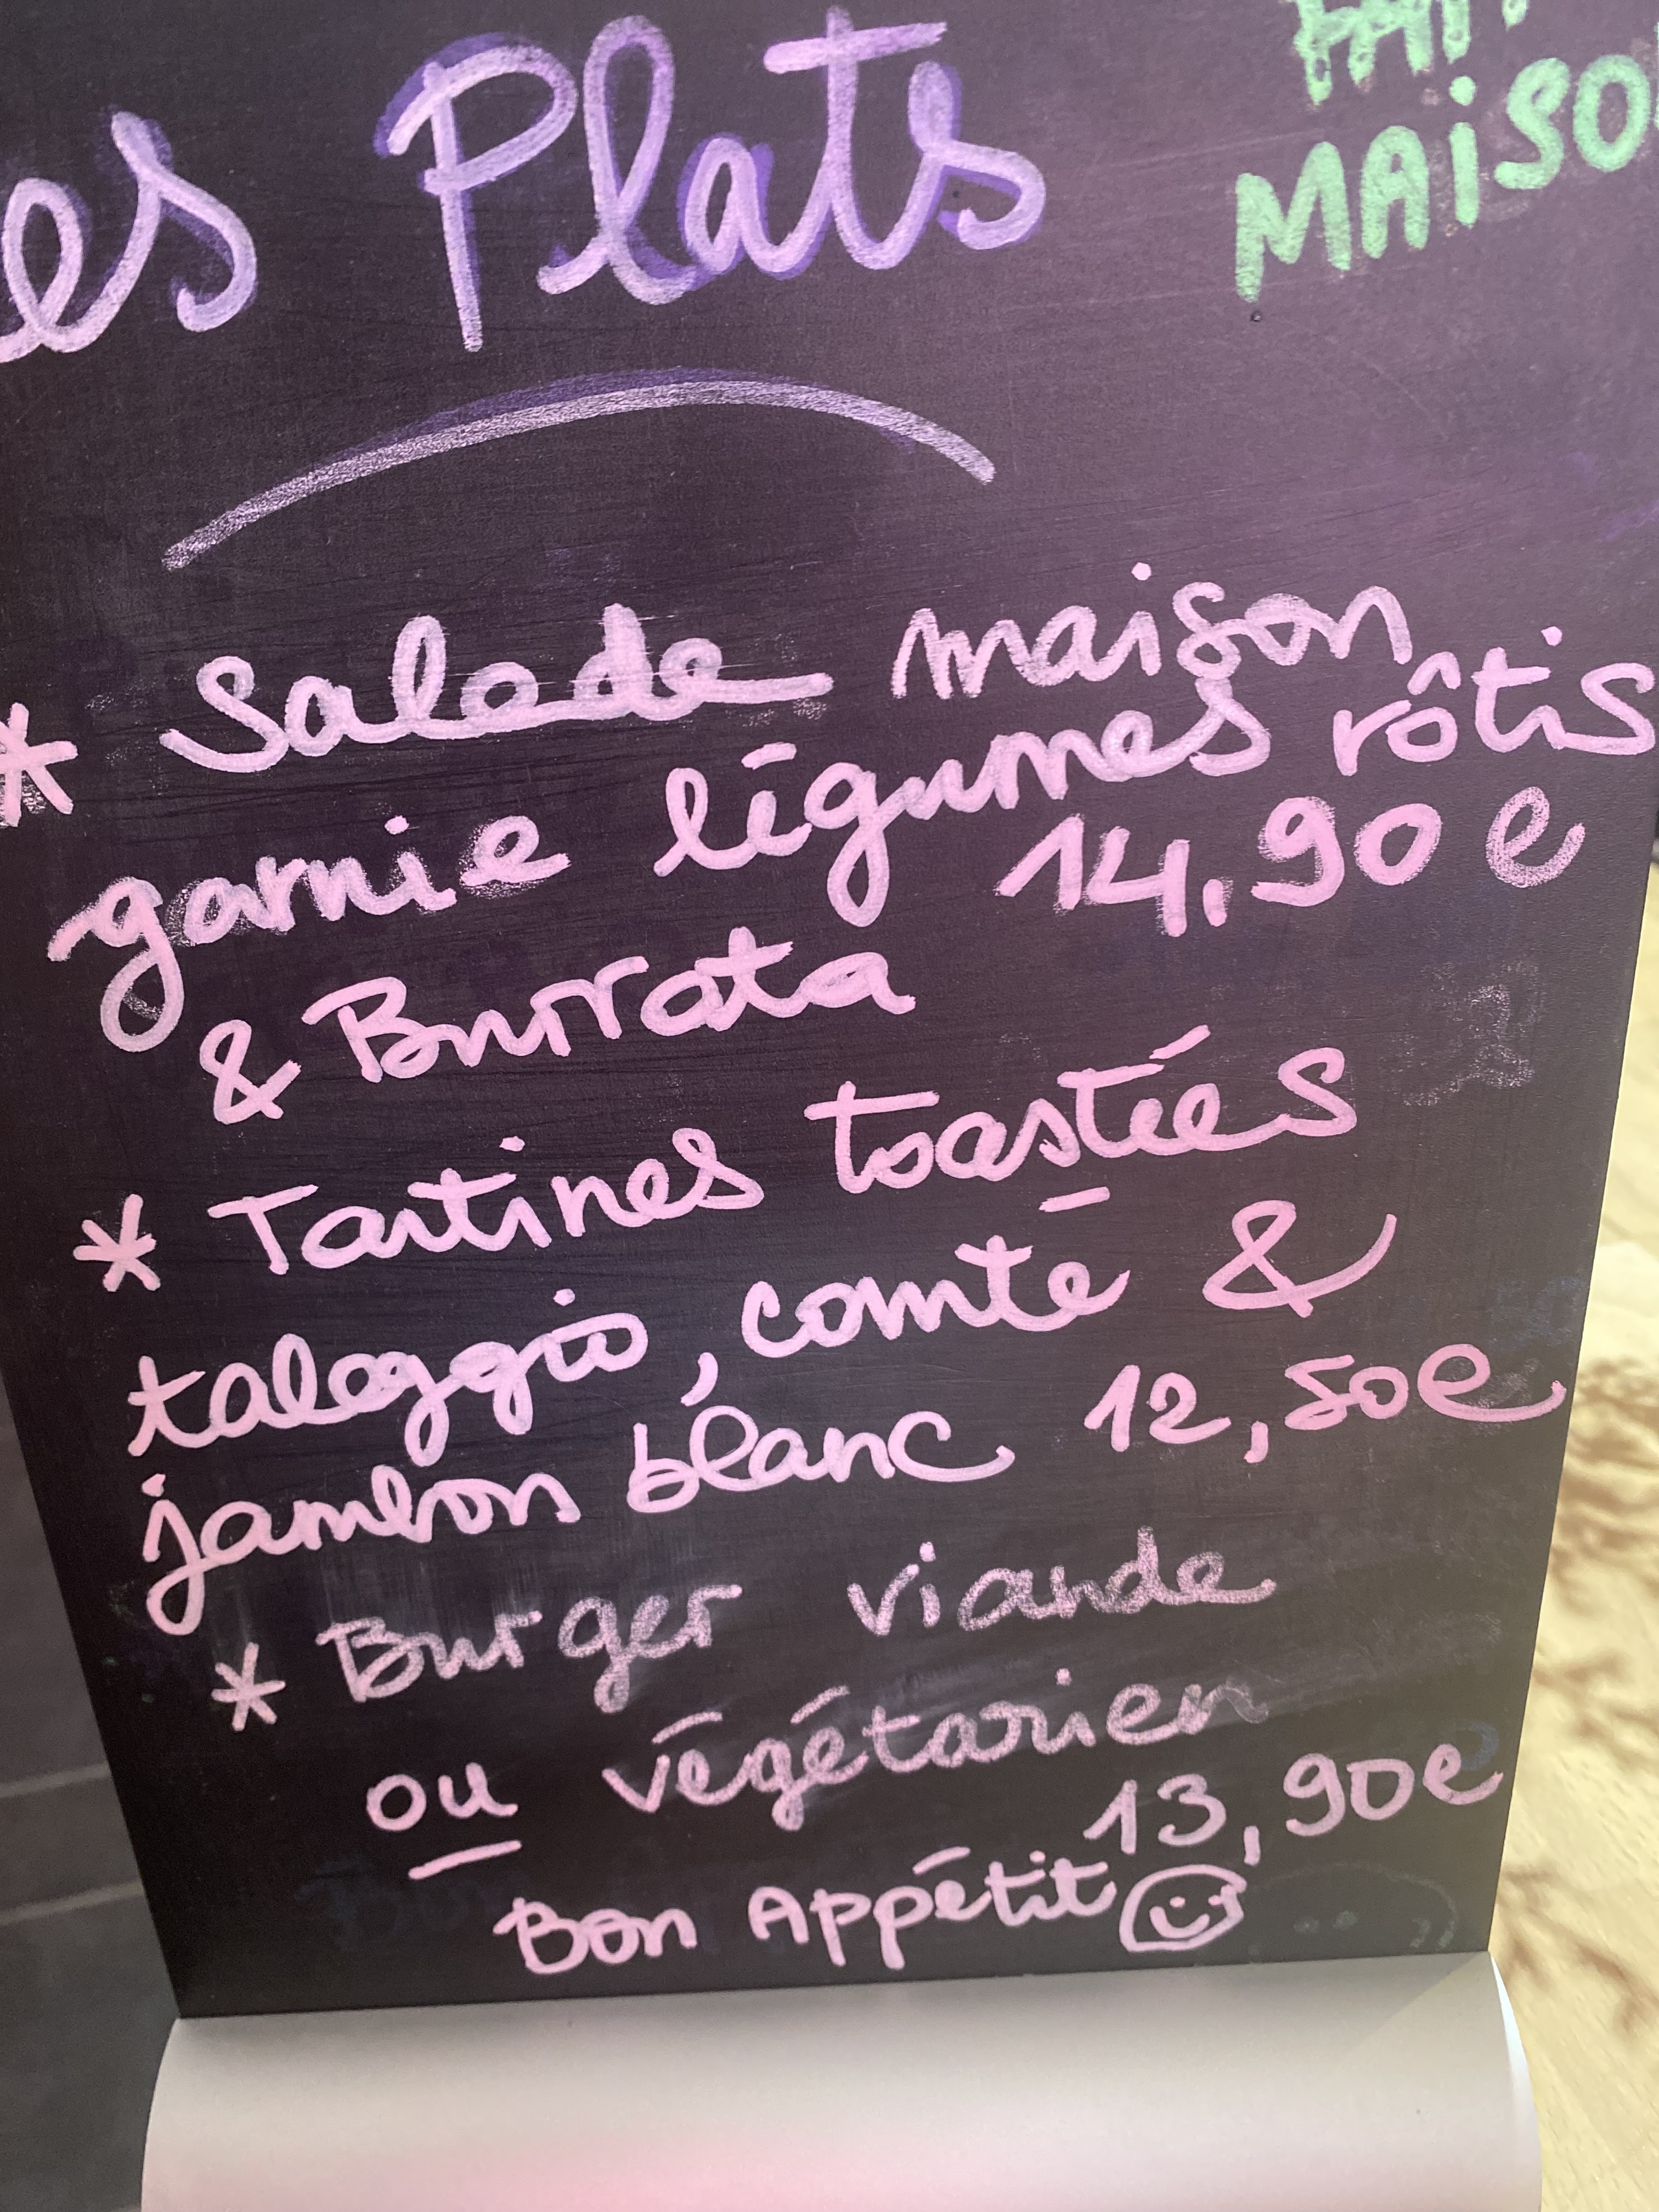 es Plats
FAIT
MAISO
* Salade maison
garnie légumes rôtis
14,90 e
& Burrata
* Tartines toastées
taleggio, comté &
jambon blanc 12,50e
* Burger viande
ou végétarien
13,90e
Bon Appétit